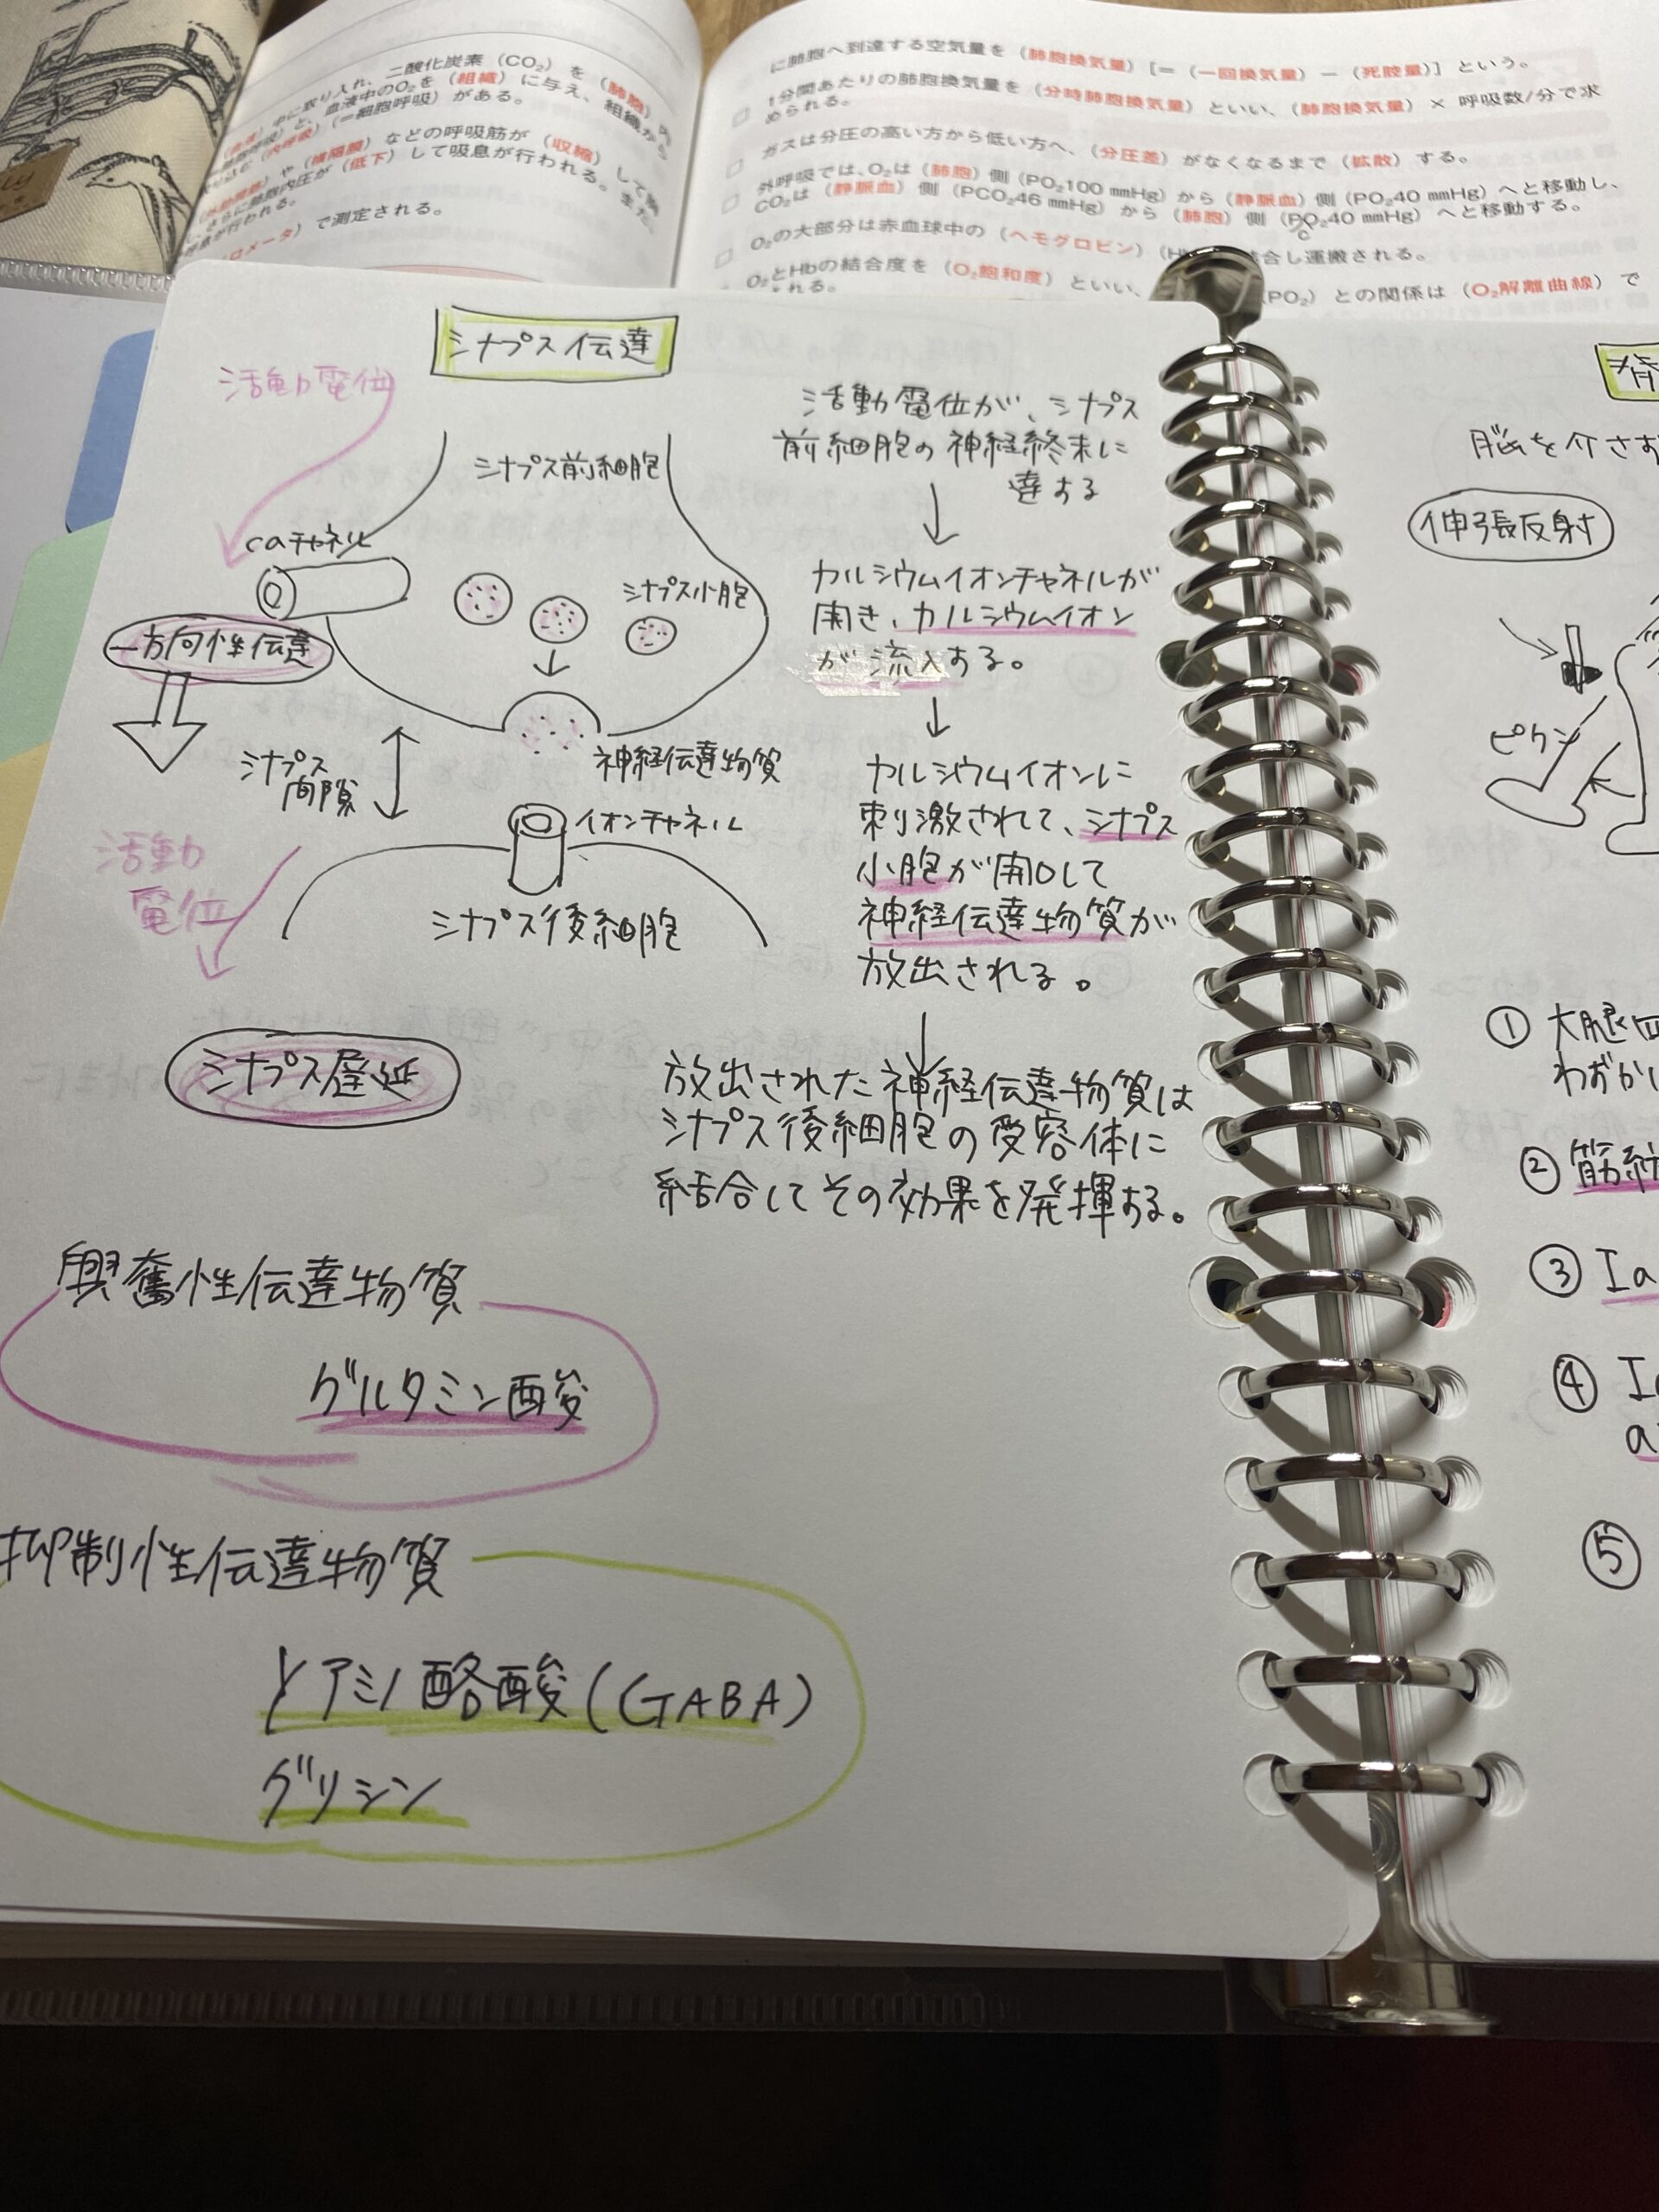 中に取り入れ、二酸化炭素（CO₂）を（肺胞）内
と、血液中のO₂を（組織）に与え、組織から
（内呼吸）（＝細胞呼吸）がある。
や（横隔膜）などの呼吸筋が（収縮）して胸
さらに肺胞内圧が（低下）して吸息が行われる。また、
が行われる。
ロメータ）で測定される。
に肺胞へ到達する空気量を（肺胞換気量）［＝（一回換気量）－（死腔量）］という。
□ 1分間あたりの肺胞換気量を（分時肺胞換気量）といい、（肺胞換気量）× 呼吸数/分で求
められる。
□ ガスは分圧の高い方から低い方へ、（分圧差）がなくなるまで（拡散）する。
□ 外呼吸では、O₂は（肺胞）側（PO₂100 mmHg）から（静脈血）側（PO₂40 mmHg）へと移動し、
CO₂は（静脈血）側（PCO₂46 mmHg）から（肺胞）側（PO₂40 mmHg）へと移動する。
C
□ O₂の大部分は赤血球中の（ヘモグロビン）（H 合し運搬される。
O₂とHbの結合度を（O₂飽和度）といい、 PO₂）との関係は（O₂解離曲線）で
れる。
シナプス伝達
活動電位
シナプス前細胞
caチャネル
シナプス小胞
一方向性伝達
シナプス
間隙
神経伝達物質
イオンチャネル
活動
電位
シナプス後細胞
シナプス遅延
活動電位が、シナプス
前細胞の神経終末に
達する
↓
カルシウムイオンチャネルが
開き、カルシウムイオン
が流入する。
↓
カルシウムイオンに
刺激されて、シナプス
小胞が開口して
神経伝達物質が
放出される。
↓
放出された神経伝達物質は
シナプス後細胞の受容体に
結合してその効果を発揮する。
興奮性伝達物質
グルタミン酸
抑制性伝達物質
γアミノ酪酸（GABA）
グリシン
脳を介さず
伸張反射
ピクン
① 大腿四
わずかに
② 筋紡
③ Ia
④
⑤